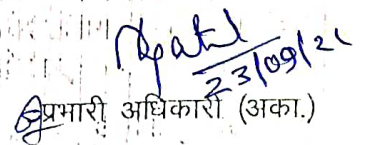 23/09/21
प्रभारी अधिकारी (अका.)